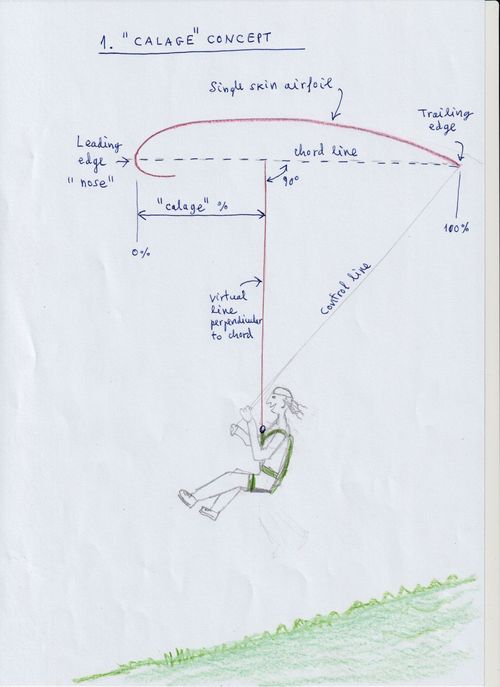 1. "CALAGE" CONCEPT
Single skin airfoil
Trailing
edge
Leading
edge
"nose"
chord line
90º
"calage" %
0%
100%
virtual
line
perpendicular
to chord
Control line